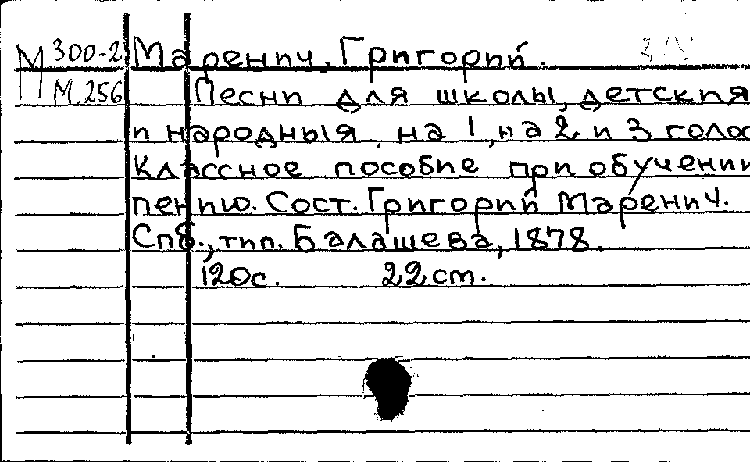 М 300-2 Маренич, Григорий.
М.256 Песни для школы, детския
и народныя, на 1, на 2 и 3 голос
Классное пособие при обучении
пению. Сост. Григорий Маренич.
Спб., тип. Балашева, 1878.
120с. 22 см.